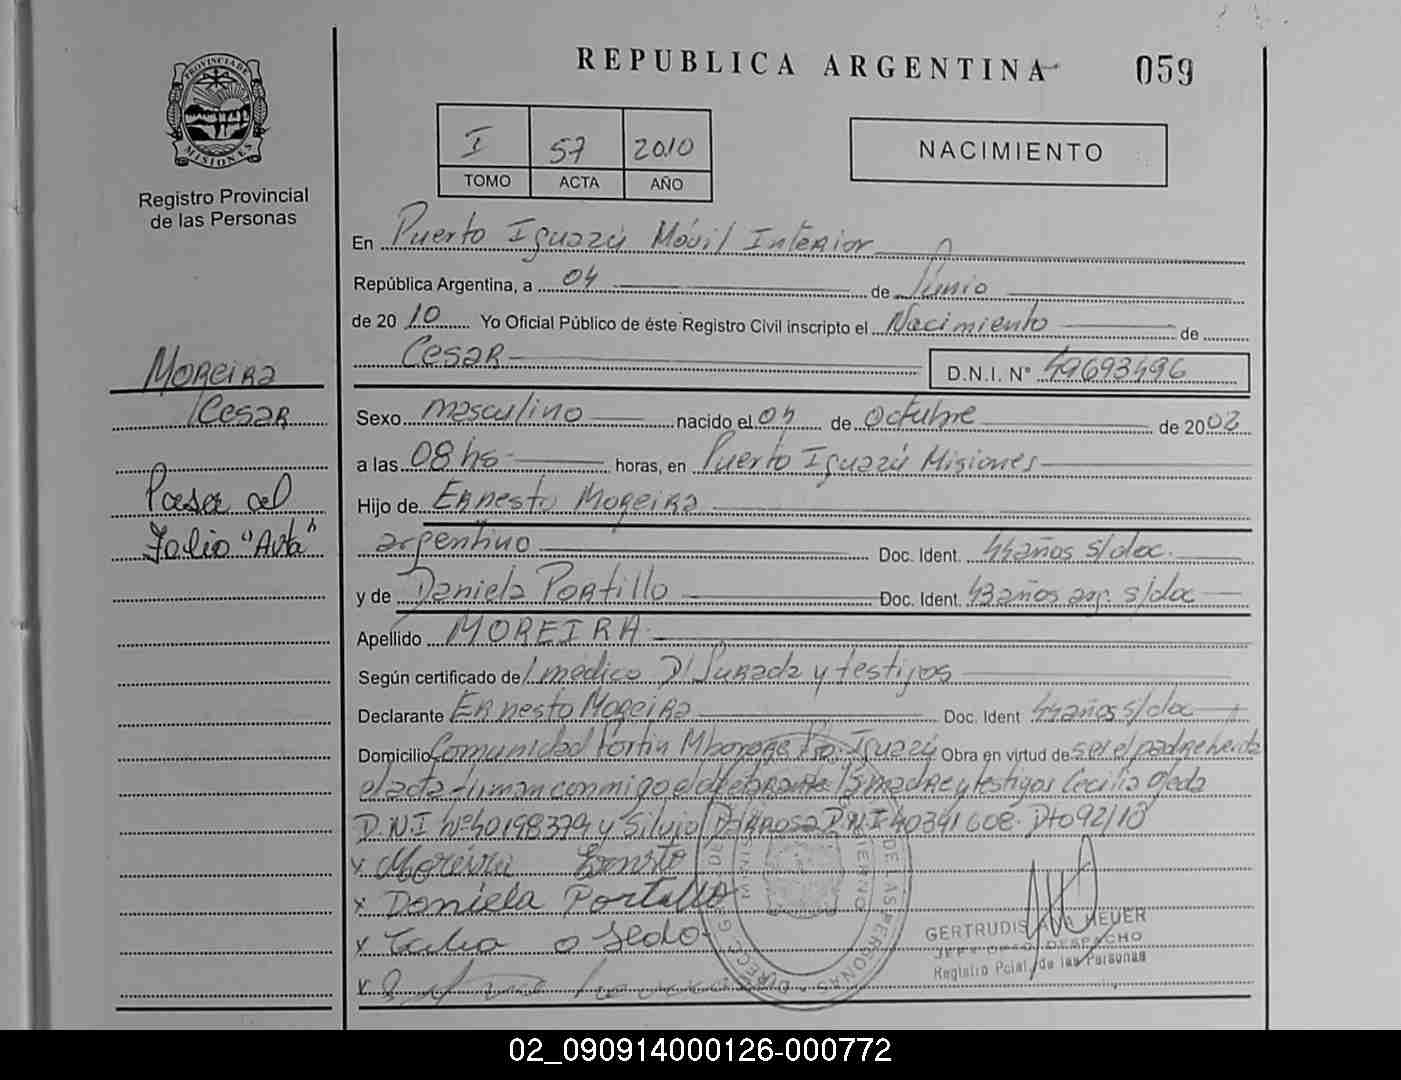 REPUBLICA ARGENTINA
059
PROVINCIA DE
MISIONES
Registro Provincial
de las Personas
I 57 2010
TOMO ACTA AÑO
NACIMIENTO
En Puerto Iguazú Móvil Interior
República Argentina, a 04 de Junio
de 2010 Yo Oficial Público de éste Registro Civil inscripto el Nacimiento de
Cesar D.N.I. N° 49693496
Moreira
Cesar
Pasa al
Folio "Acta"
Sexo masculino nacido el 04 de Octubre de 2002
a las 08 hs horas, en Puerto Iguazú Misiones
Hijo de Ernesto Moreira
argentino Doc. Ident. 44 años s/doc.
y de Daniela Portillo Doc. Ident. 43 años arg. s/doc
Apellido MOREIRA
Según certificado de médico D/ Jurada y testigos
Declarante Ernesto Moreira Doc. Ident 44 años s/doc
Domicilio Comunidad Fortin Mbororé Pto. Iguazú Obra en virtud de ser el padre
el acta firman conmigo el declarante la madre y testigos Cecilia
D.N.I Nº 40198379 y Silvio D.N.I 40341608. Dto 92/10
x Moreira Ernesto
x Daniela Portillo
x
x
GERTRUDIS HEUER
JEFE DPTO. DESPACHO
Registro Pcial. de las Personas
02_090914000126-000772